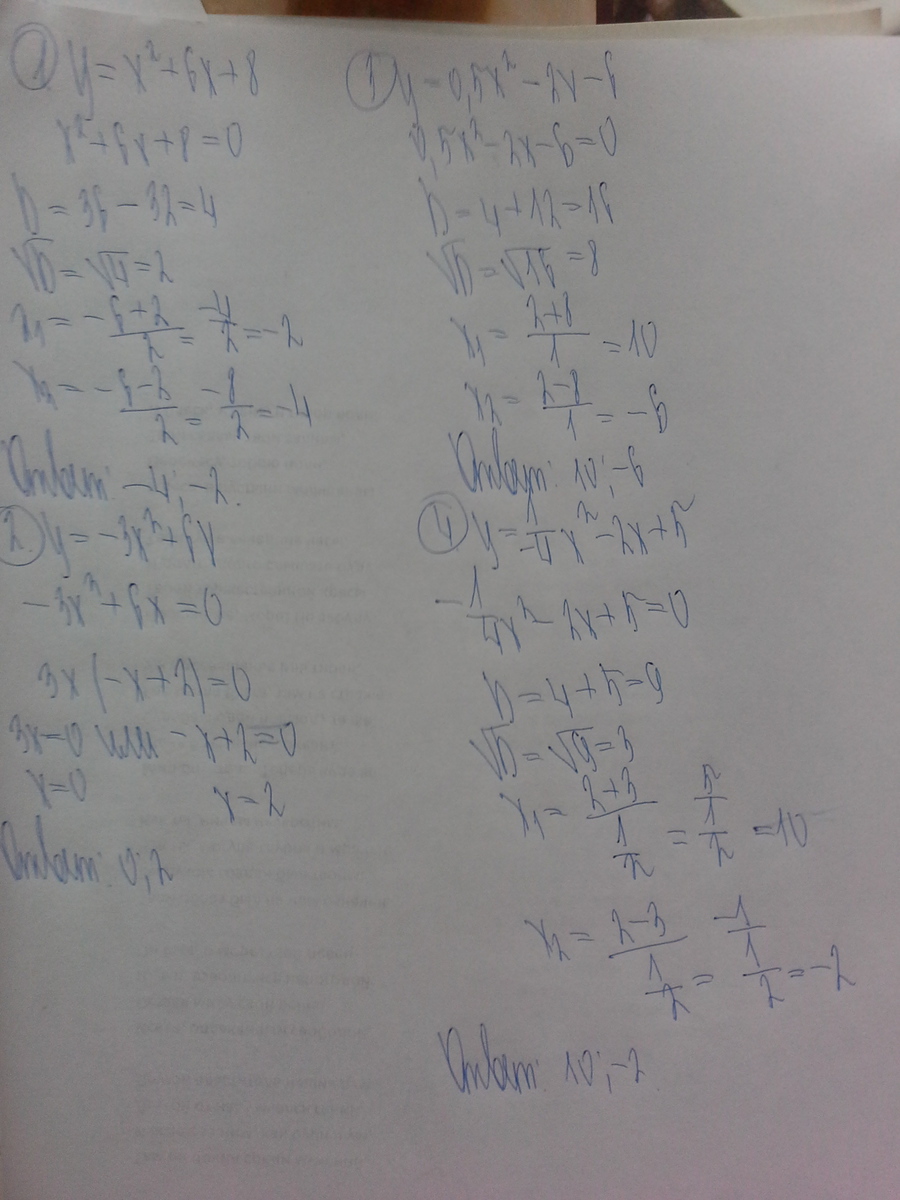 ① y = x² + 6x + 8
x² + 6x + 8 = 0
D = 36 − 32 = 4
√D = √4 = 2
x₁ = −6+2/2 = −4/2 = −2
x₂ = −6−2/2 = −8/2 = −4
Ответ: −4; −2.
② y = −3x² + 6x
−3x² + 6x = 0
3x (−x + 2) = 0
3x = 0 или −x + 2 = 0
x = 0 x = 2
Ответ: 0; 2
③ y = 0,5x² − 2x − 6
0,5x² − 2x − 6 = 0
D = 4 + 12 = 16
√D = √16 = 8
x₁ = 2+8/1 = 10
x₂ = 2−8/1 = −6
Ответ: 10; −6
④ y = −1/4x² − 2x + 5
−1/4x² − 2x + 5 = 0
D = 4 + 5 = 9
√D = √9 = 3
x₁ = 2+3/1/2 = 5/1/2 = 10
x₂ = 2−3/1/2 = −1/1/2 = −2
Ответ: 10; −2